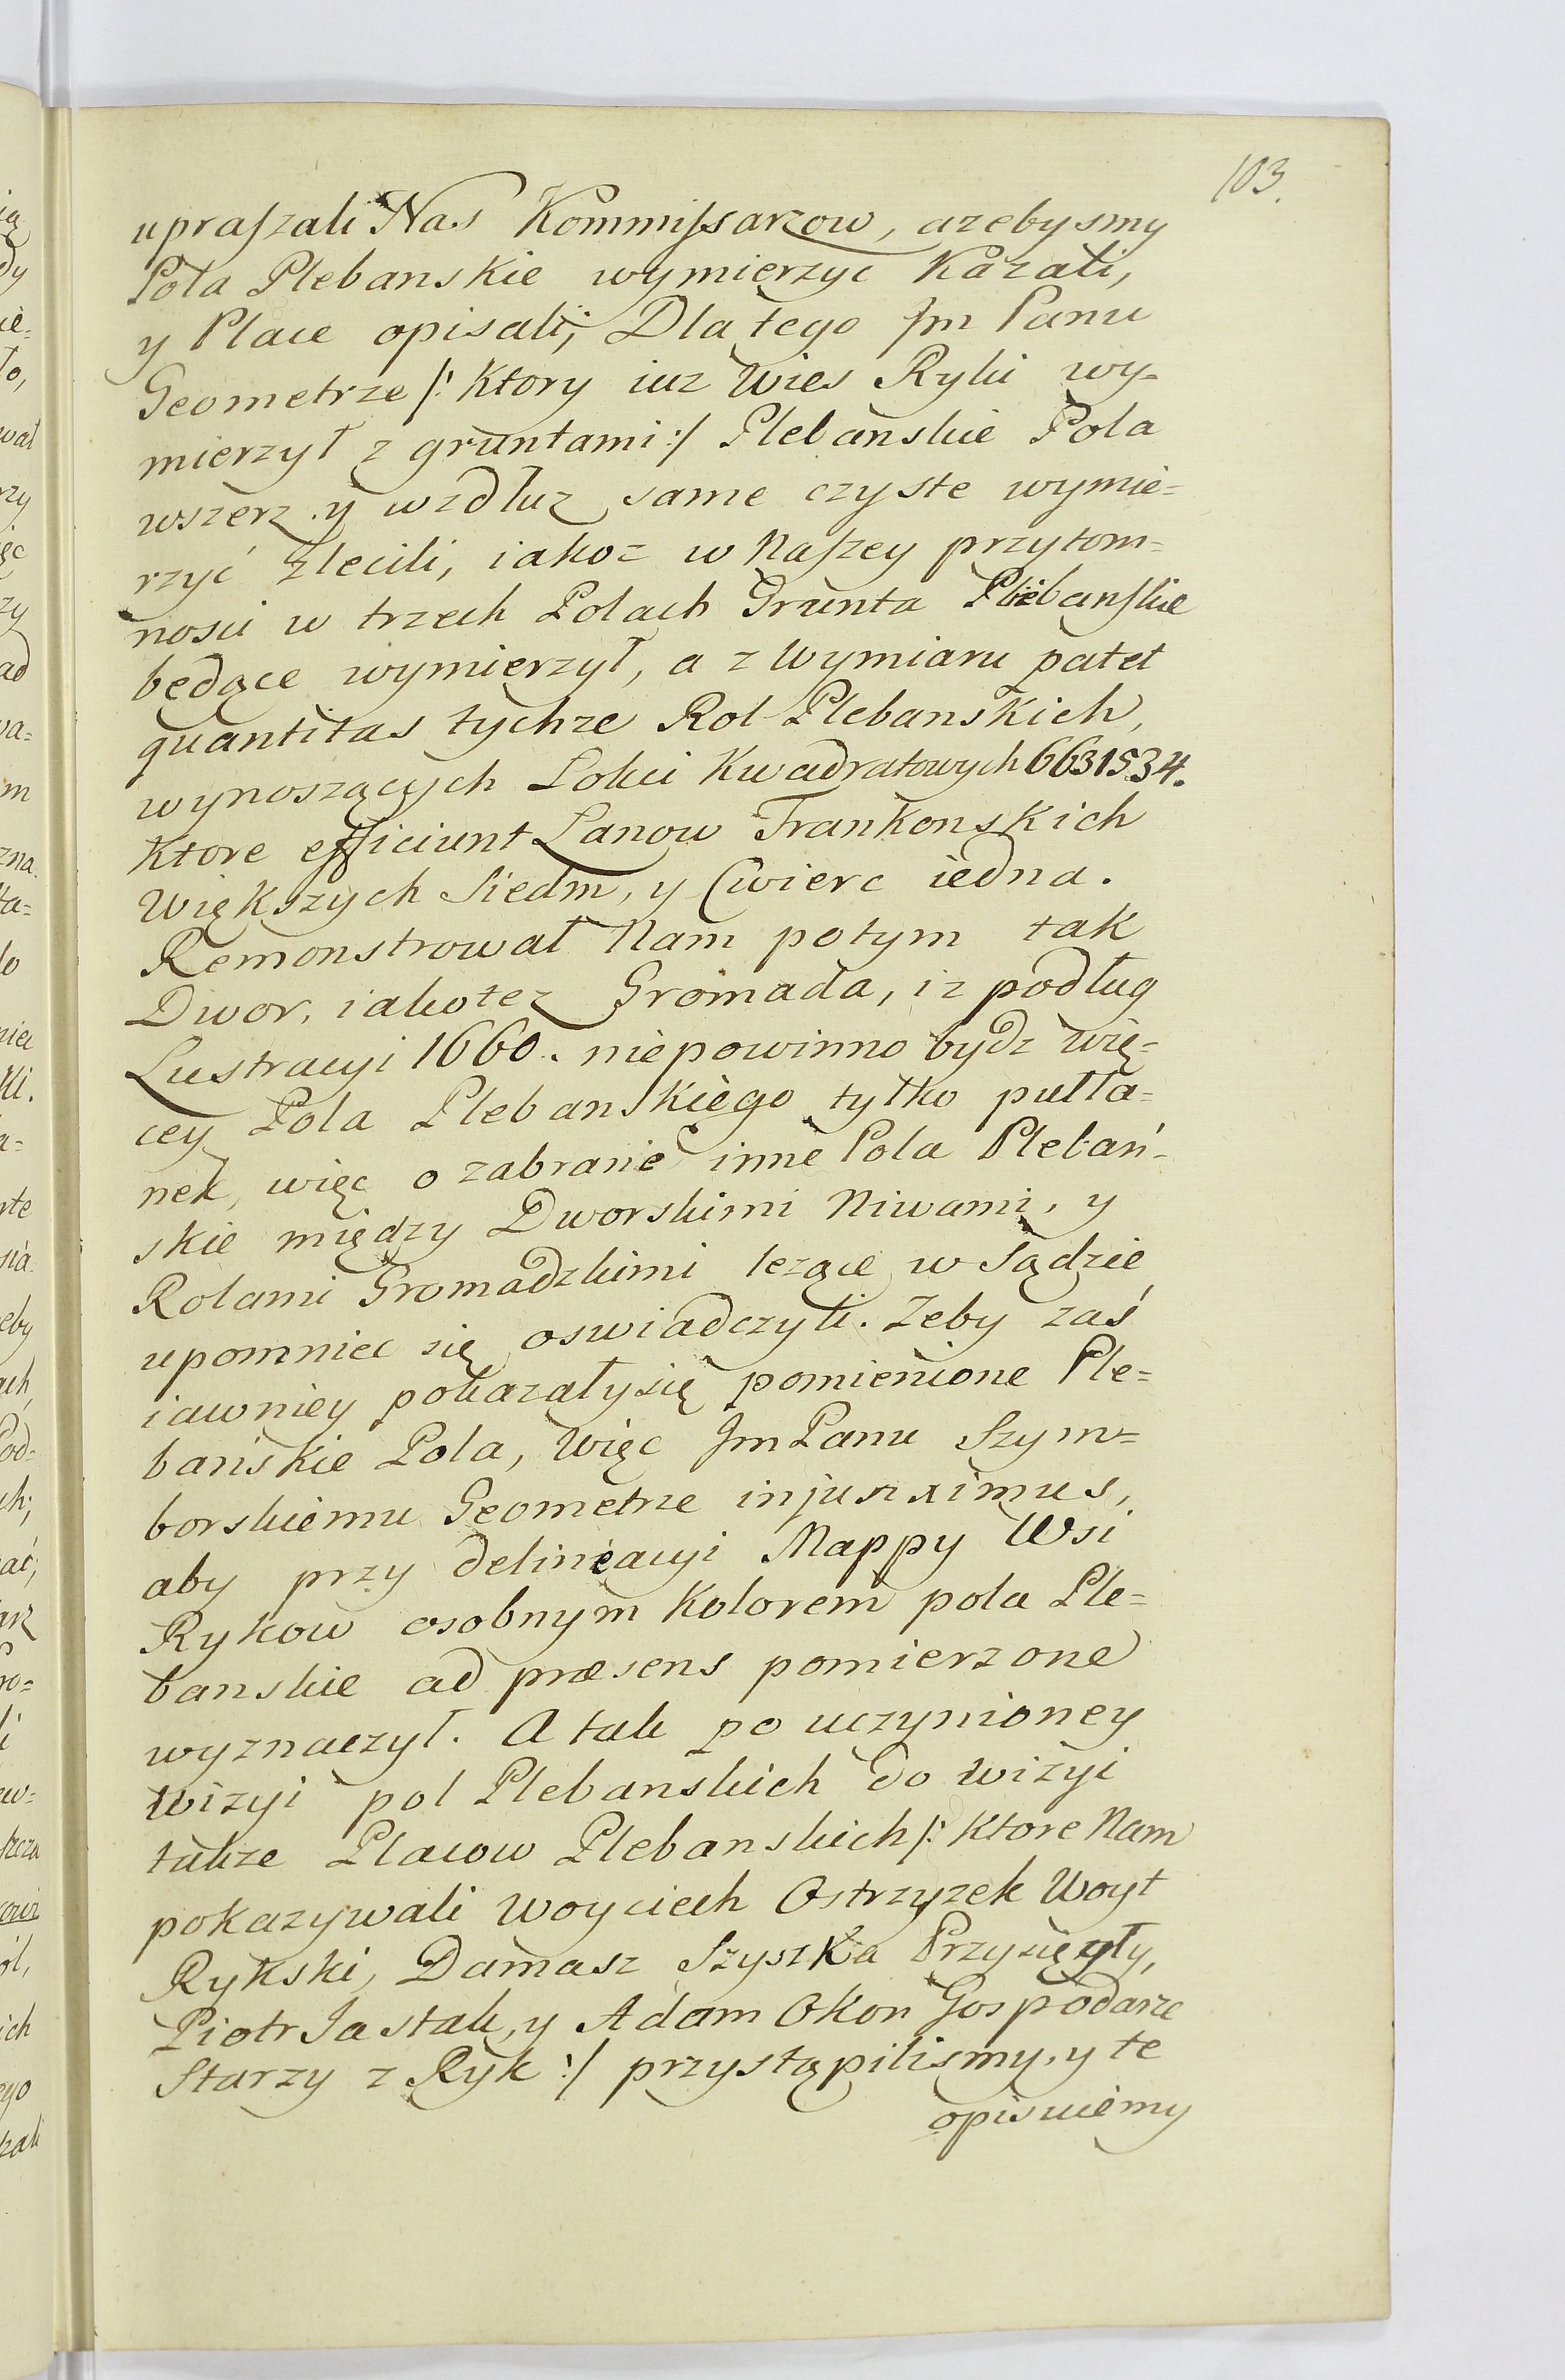 103.
upraszali Nas Kommissarzow, azebysmy
Pola Plebanskie wymierzyc Kazali,
y Place opisali; Dla tego Jm Panu
Geometrze /: Ktory iuz Wies Ryki wy-
mierzył z gruntami :/ Plebanskie Pola
wszerz y wzdłuz same czyste wymie=
rzyć zlecili, iakoz w Naszey przytom=
nosci w trzech Polach Grunta Plebanskie
będące wymierzył, a z Wymiaru patet
quantitas tychze Rol Plebanskich,
wynoszących Lokci Kwadratowych 6631534.
Ktore efficiunt Lanow Frankonskich
Większych Siedm, y Cwierc iedna.
Remonstrował Nam potym tak
Dwor, iako tez Gromada, iz podług
Lustracyi 1660. niepowinno bydz wię=
cey Pola Plebanskiego tylko pułła=
nek, więc o zabranie inne Pola Plebań-
skie między Dworskimi Niwami, y
Rolami Gromadzkimi lezące w Sądzie
upomniec się oswiadczyli. Zeby zaś
iawniey pokazały się pomienione Ple=
bańskie Pola, Więc Jm Panu Szym=
borskiemu Geometrze injunximus,
aby przy delineacyi Mappy Wsi
Rykow osobnym Kolorem pola Ple=
banskie ad præsens pomierzone
wyznaczył. A tak po uczynioney
Wizyi pol Plebanskich do wizyi
takze Placow Plebanskich /: Ktore Nam
pokazywali Woyciech Ostrzyzek Woyt
Rykski, Damasz Szyszka Przysięzły,
Piotr Jastak, y Adam Okon Gospodarze
Starzy z Ryk :/ przystąpilismy, y te
opisuiemy